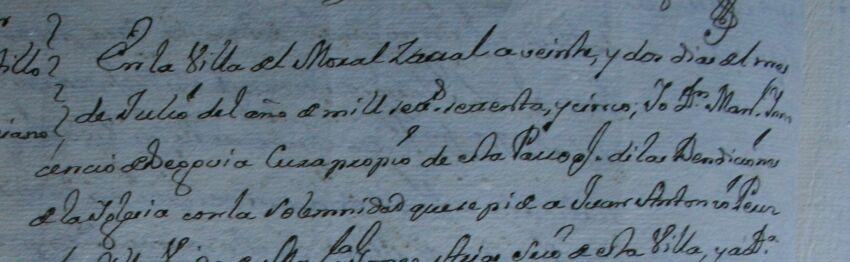 En la Villa del Moral Zarzal a veinte, y dos dias del mes
de Julio del año de mill setz.s sesenta, y cinco; Yo Dn. Man.l Ynno
cencio de Segovia Cura propio de esta Parroq.l di las Bendiciones
de la Yglesia con la solemnidad que se pide a Juan Antonio
de esta Villa, y a D.a